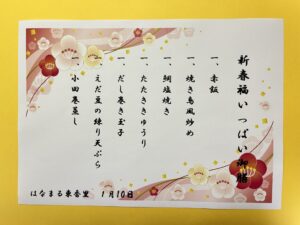 新春福いっぱい御膳
一、赤飯
一、焼き鳥風炒め
一、鯛塩焼き
一、たたききゅうり
一、だし巻き玉子
一、えだ豆の練り天ぷら
一、小田巻蒸し
はなまる東香里 1月10日